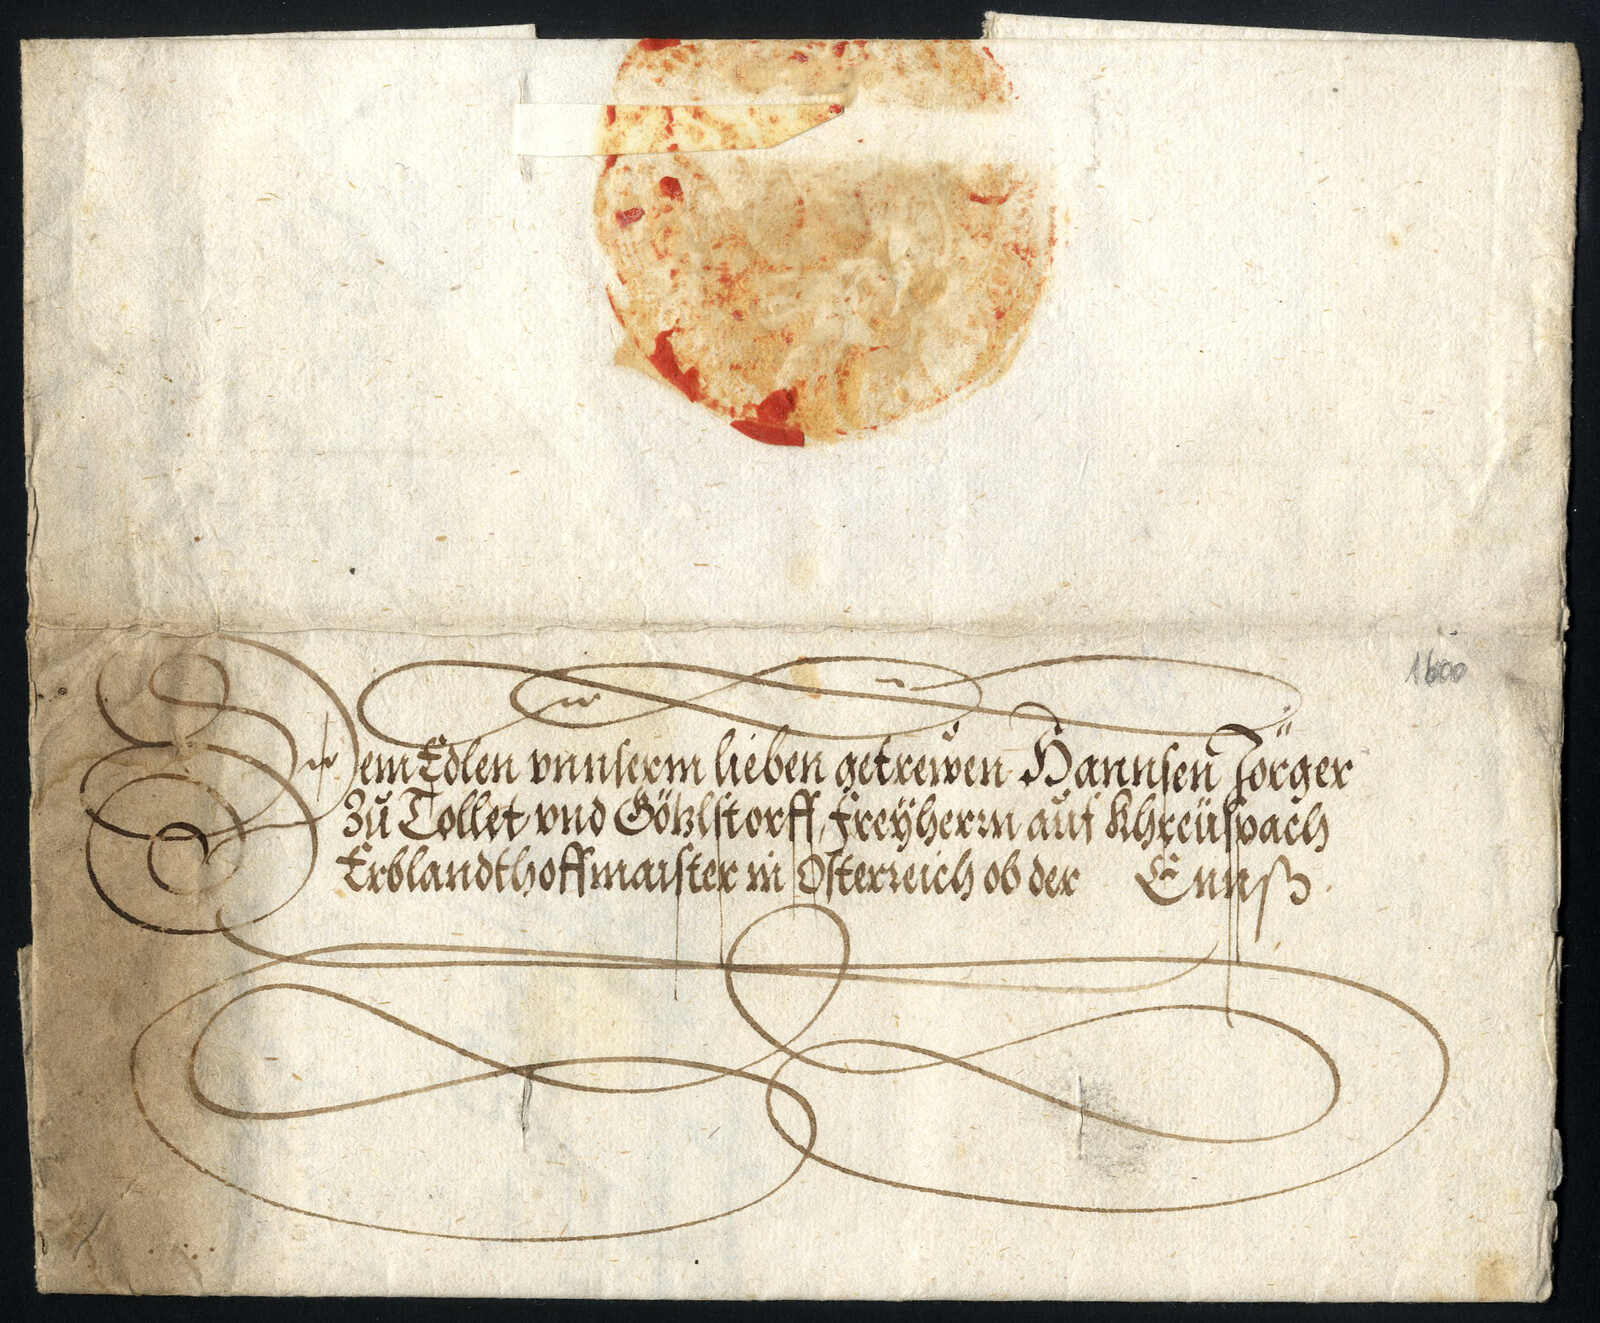 1600
Dem Edlen vnnserm lieben getrewen Hannsen Jörger
Zu Tollet vnd Götzlstorff, Freÿherrn auf Khreuspach
Erblandthoffmaister in Osterreich ob der Ennß.